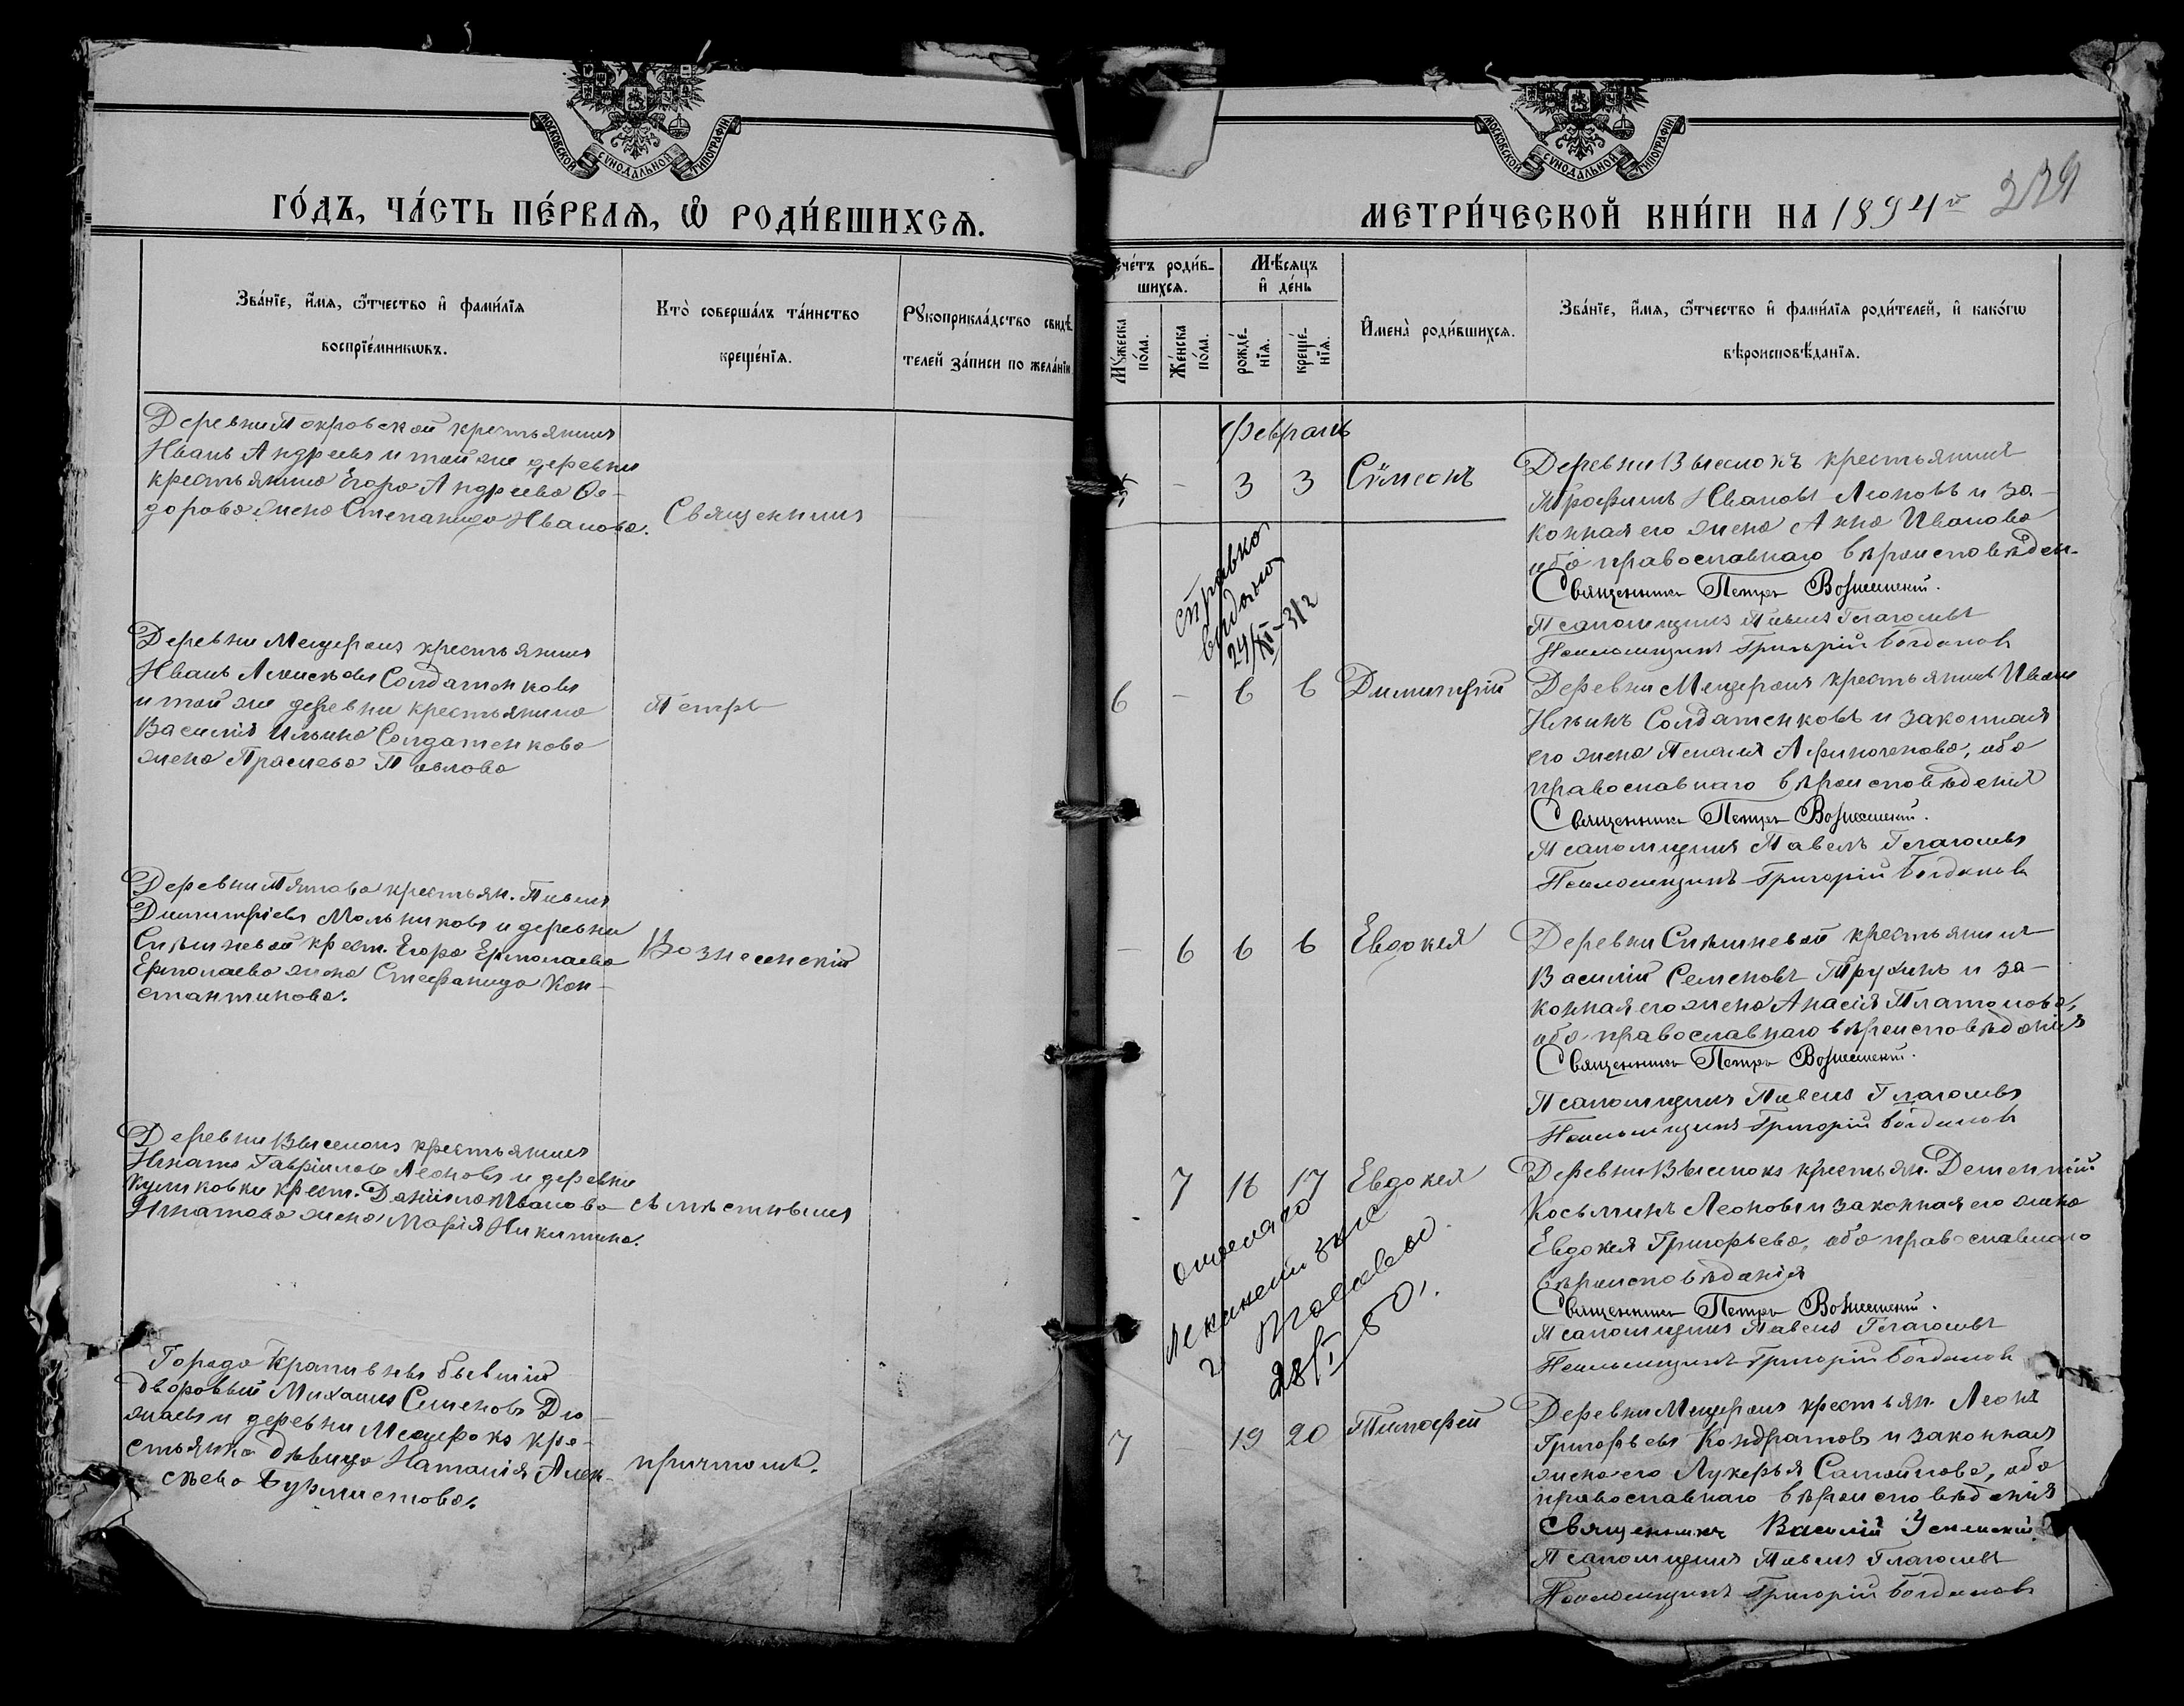 МОСКОВСКОЙ СѴНОДАЛЬНОЙ ТИПОГРАФІИ
ГО́ДЪ, ЧА́СТЬ ПЕ́РВАѦ, Ѡ҆ РОДИ́ВШИХСѦ.
Зва́нїе, и҆́мѧ, ѻ҆́тчество и҆ фами́лїѧ
воспрїе́мникѡвъ.
Кто̀ соверша́лъ та́инство
креще́нїѧ.
Рꙋкоприкла́дство свидѣ́-
телей за́писи по жела́нїю
Деревни Покровской крестьянинъ
Иванъ Андреевъ и той же деревни
крестьянина Егора Андреева Ѳе-
дорова жена Степанида Иванова.
Священникъ
Деревни Мещерокъ крестьянинъ
Иванъ Алексѣевъ Солдатенковъ
и той же деревни крестьянина
Василія Ильина Солдатенкова
жена Прасковья Павлова
Петръ
Деревни Пятова крестьян. Павелъ
Димитріевъ Мольниковъ и деревни
крест. Егора Ермолаева
Ермолаева жена Стефанида Кон-
стантинова.
Вознесенскій
Деревни Выселокъ крестьянинъ
Игнатъ Гавріиловъ Леоновъ и деревни
Куликовки крест. Даніила Иванова
Игнатова жена Марія Никитина.
съ мѣстнымъ
Города Крапивны бывшій
дворовый Михаилъ Семеновъ
и деревни Мещерокъ кре-
стьянка дѣвица Наталія Алек-
сѣева Бурмистрова.
причтомъ.
МОСКОВСКОЙ СѴНОДАЛЬНОЙ ТИПОГРАФІИ
МЕТРИ́ЧЕСКОЙ КНИ́ГИ НА 1894й
Сче́тъ роди́в-
шихсѧ.
Мѣ́сѧцъ
и҆ де́нь
И҆мена̀ роди́вшихсѧ.
Зва́нїе, и҆́мѧ, ѻ҆́тчество и҆ фами́лїѧ роди́телей, и҆ како́гѡ
вѣроисповѣ́данїѧ.
Мꙋ́жеска по́ла.
Же́нска по́ла.
рожде́-нїѧ.
креще́-нїѧ.
Февраль
5 - 3 3 Сѵмеонъ
Деревни Выселокъ крестьянинъ
Трофимъ Ивановъ Леоновъ и за-
конная его жена Анна Иванова
оба православнаго вѣроисповѣден-
Священникъ Петръ Вознесенскій.
Псаломщикъ Павелъ Глаголевъ
Псаломщикъ Григорій Богдановъ
справка
выдана
24/XI-312
6 - 6 6 Димитрій
Деревни Мещерокъ крестьянинъ Иванъ
Ильинъ Солдатенковъ и законная
его жена Афиногенова, оба
православнаго вѣроисповѣденія
Священникъ Петръ Вознесенскій.
Псаломщикъ Павелъ Глаголевъ
Псаломщикъ Григорій Богдановъ
- 6 6 6 Евдокія
Деревни крестьянинъ
Василій Семеновъ Трухинъ и за-
конная его жена Платонова,
оба православнаго вѣроисповѣданія
Священникъ Петръ Вознесенскій.
Псаломщикъ Павелъ Глаголевъ
Псаломщикъ Григорій Богдановъ
- 7 16 17 Евдокія
Деревни Выселокъ крестьян. Дементій
Косьминъ Леоновъ и законная его жена
Евдокія Григорьева, оба православнаго
вѣроисповѣданія
Священникъ Петръ Вознесенскій.
Псаломщикъ Павелъ Глаголевъ
Псаломщикъ Григорій Богдановъ
загс
г. Москвы
28/I
7 - 19 20 Тимофей
Деревни Мещерокъ крестьян. Леонъ
Григорьевъ Кондратовъ и законная
жена его Лукерья Самойлова, оба
православнаго вѣроисповѣданія
Священникъ Василій Успенскій.
Псаломщикъ Павелъ Глаголевъ
Псаломщикъ Григорій Богдановъ